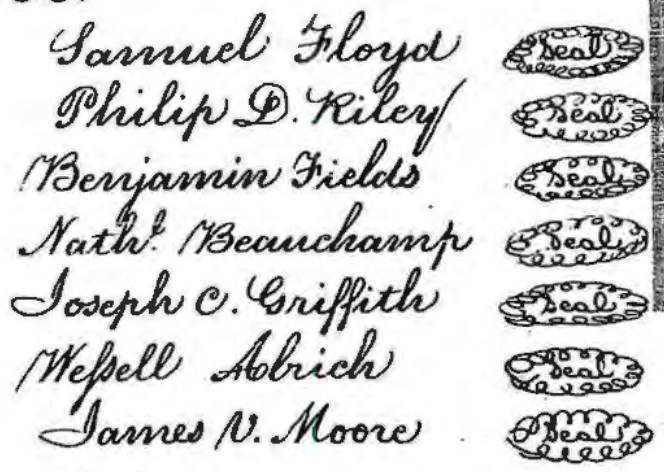 Samuel Floyd Seal
Philip D. Riley Seal
Benjamin Fields Seal
Nathl. Beauchamp Seal
Joseph C. Griffith Seal
Weſsell Albrich Seal
James V. Moore Seal